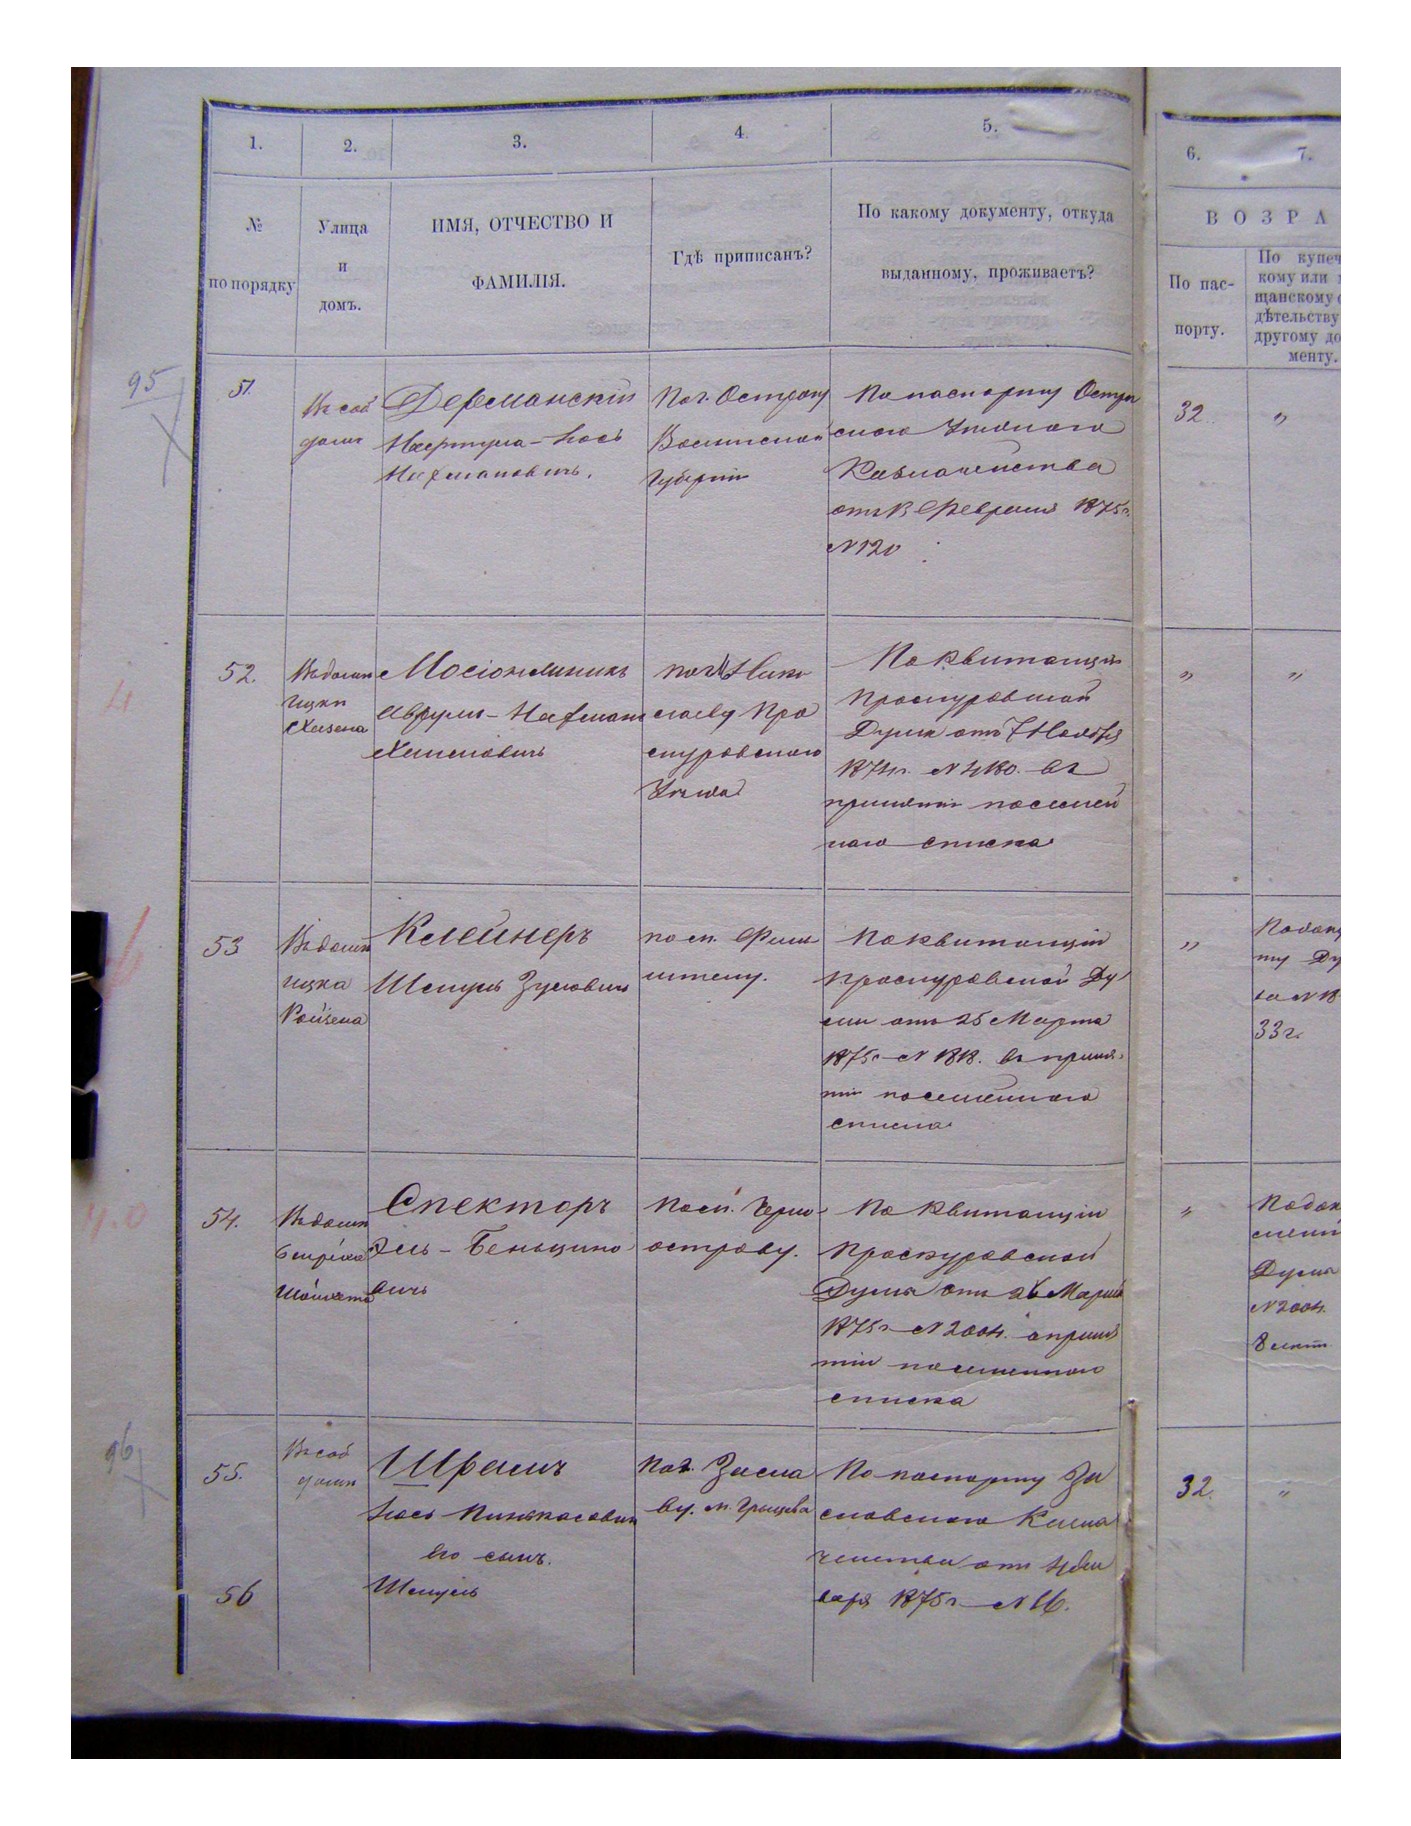 1.
2.
3.
4
5.
6.
7.
№
по порядку
Улица
и
домъ.
ИМЯ, ОТЧЕСТВО И
ФАМИЛІЯ.
Гдѣ приписанъ?
По какому документу, откуда
выданному, проживаетъ?
ВОЗРА
По пас-
порту.
По купеч
кому или
щанскому
дѣтельству
другому до
менту.
95
51.
Въ соб
домѣ
Дерманскій
Іось
Нухмановичъ.
По г. Острогу
Волынской
губерніи
По паспорту Остро
скаго Уѣзднаго
Казначейства
отъ Февраля 1875 г.
№ 120
32
"
4
52.
Въ домѣ
Ицки
Хазена
Мосіонжникъ
Аврумъ-Нахман
Хаимовичъ
по м. Нико
лаеву Про
скуровскаго
Уѣзда
По Квитанціи
Проскуровской
Думы отъ 7 Ноября
1874 г. № 4180. въ
принятіи посемей
наго списка
"
"
53
Въ домѣ
Ицка
Ройзена
Клейнеръ
Шмуль Зусевичъ
по м. Фель
штену.
По квитанціи
Проскуровской Ду
мы отъ 25 Марта
1875 г. № 1818. въ приня-
тіи посемейнаго
списка
"
По доку
ту Ду
за № 18
33 г.
4.0
54.
Въ домѣ
Шойхета
Спекторъ
Эль-Беньціоно
вичъ
По м. Черно-
острову.
По Квитанціи
Проскуровской
Думы отъ 26 Марта
1875 г. № 2004. о приня
тіи посемейнаго
списка
"
По док
Думы
№ 2004.
8 лѣт
96
55.
Въ соб
домѣ
Шрамъ
Іось Пинькасович
Его сынъ.
56
Шмуль
По г. Засла
ву. м. Грыцева
По паспорту За
славскаго Казна
чейства отъ 4 Ян
варя 1875 г. № 16.
32.
"